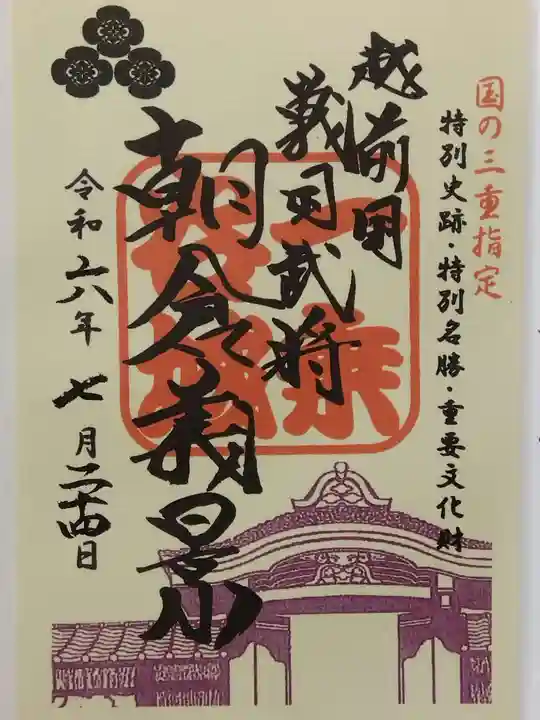 国の三重指定
特別史跡・特別名勝・重要文化財
越前国
戦国武将
朝倉義景
令和六年七月二十四日